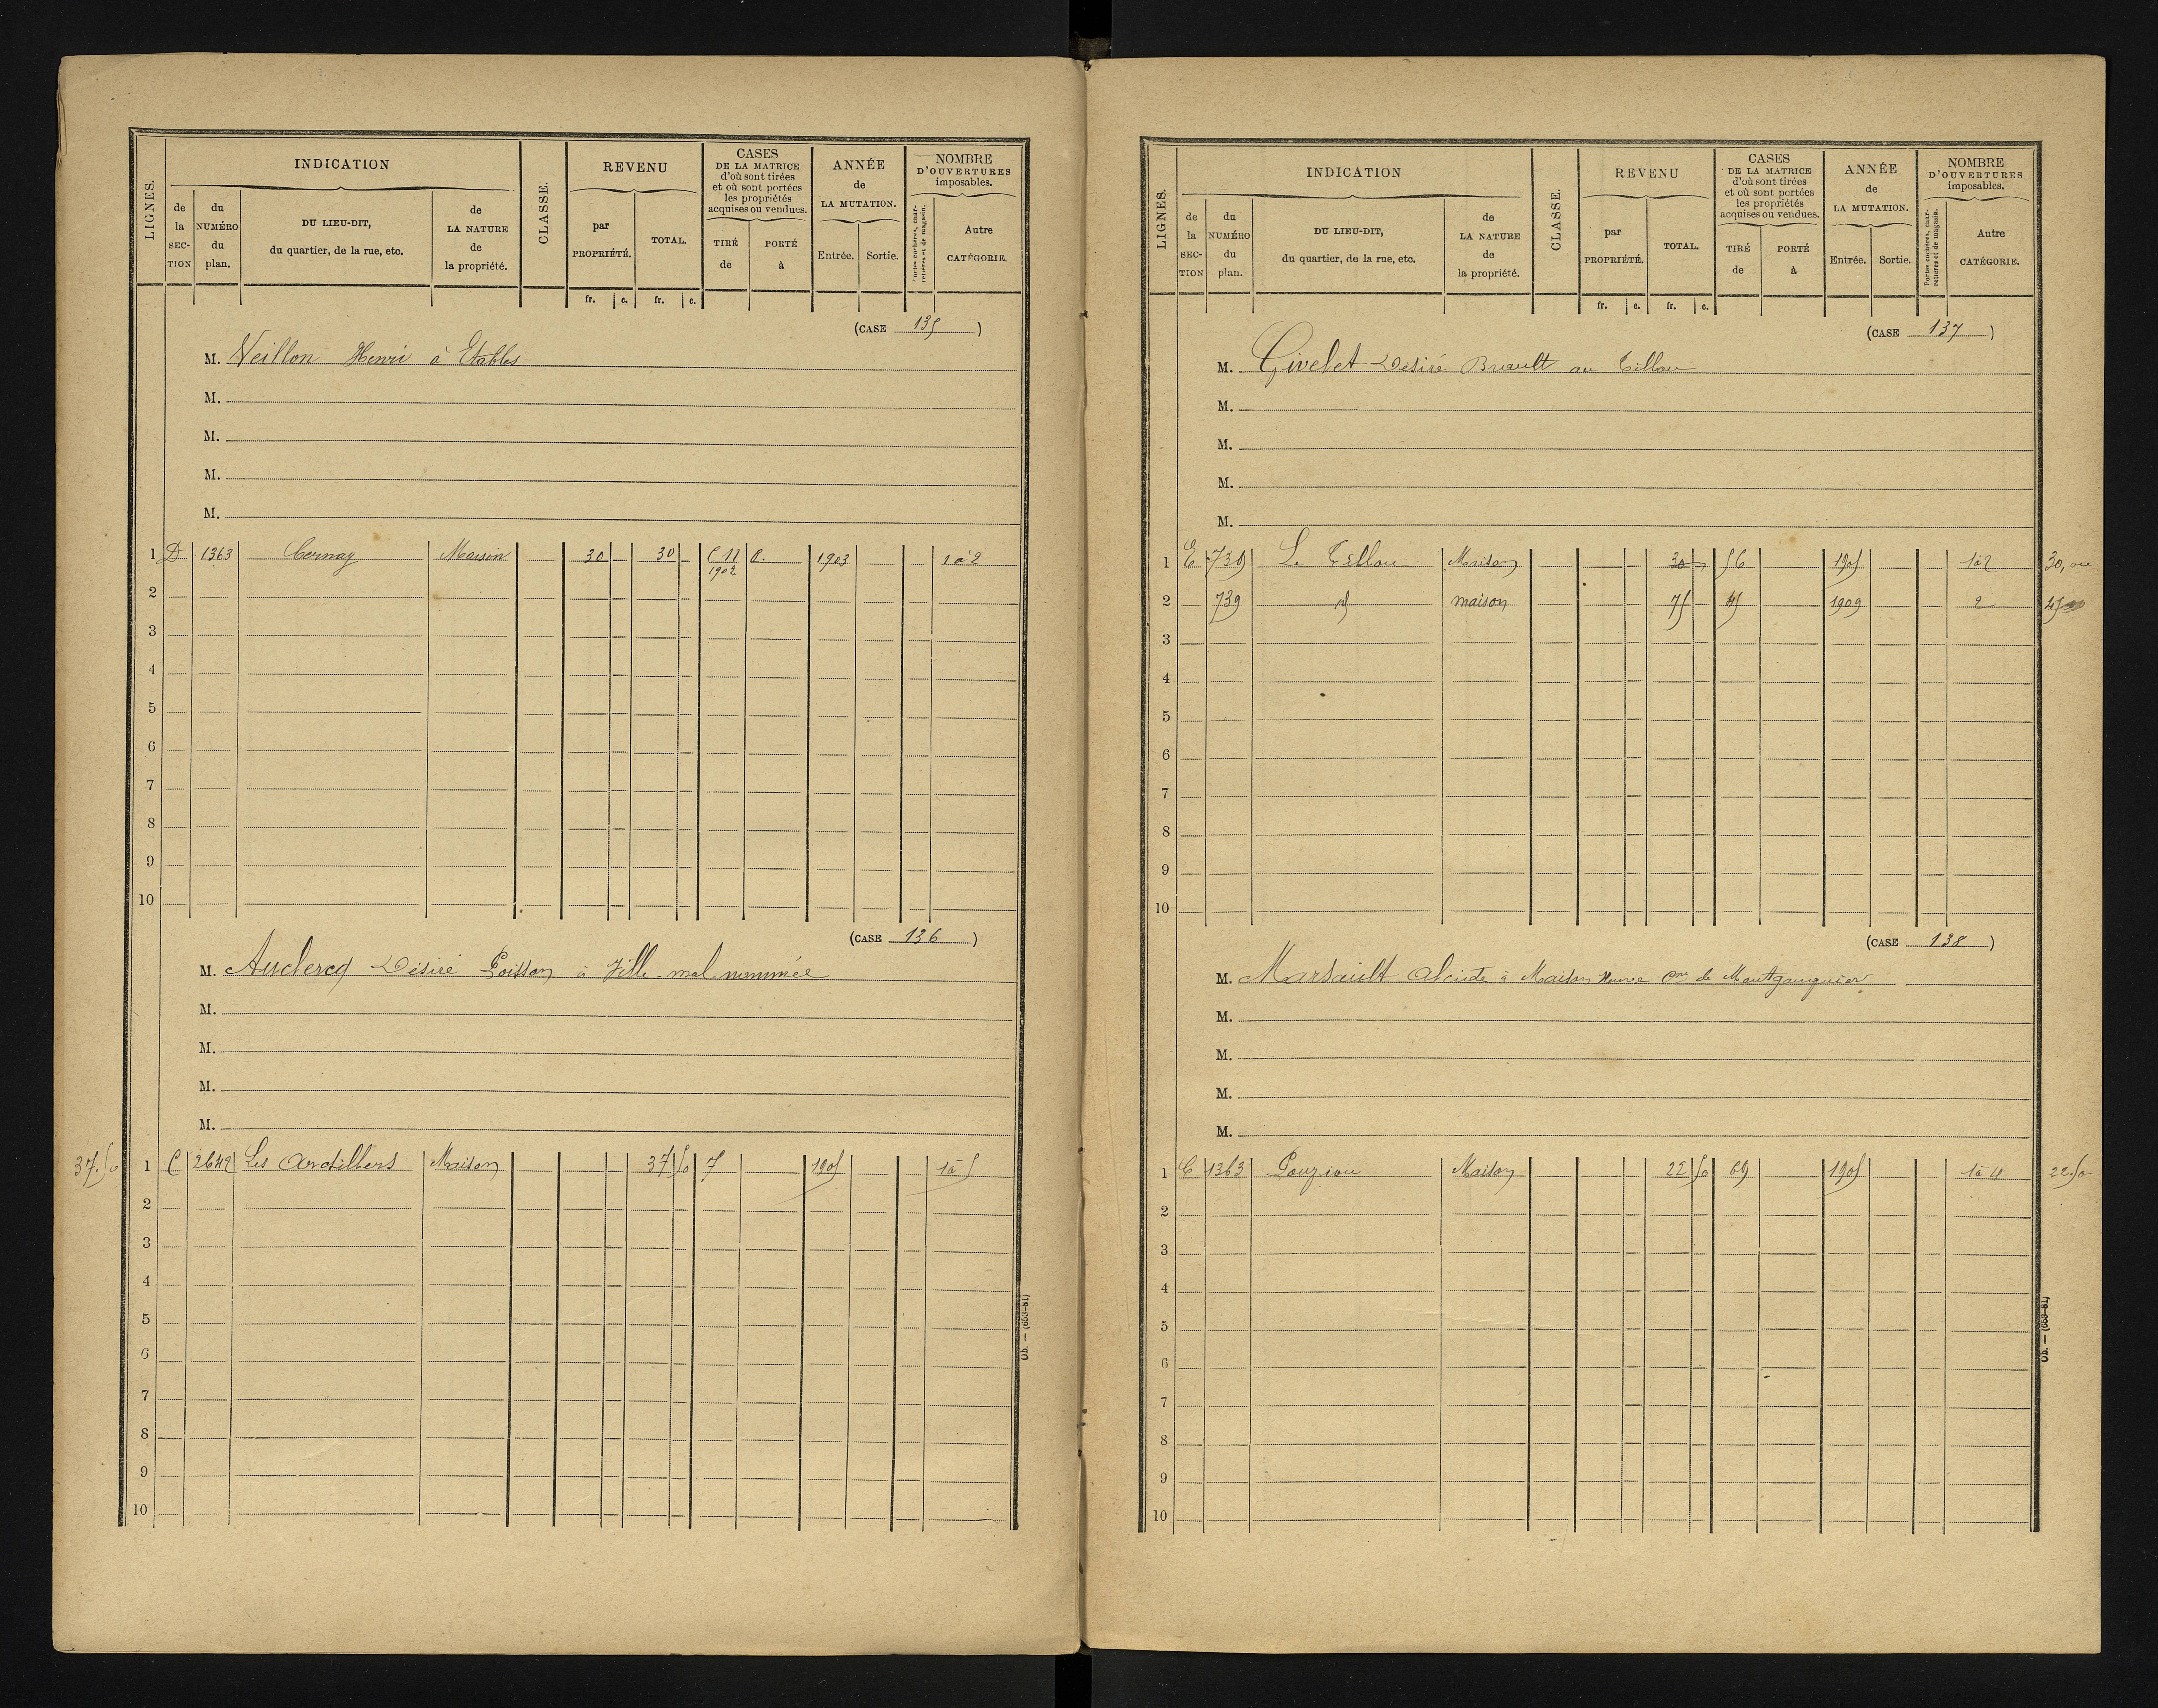 INDICATION
REVENU
CASES
DE LA MATRICE
d'où sont tirées
et où sont portées
les propriétés
acquises ou vendues.
ANNÉE
de
LA MUTATION.
NOMBRE
D'OUVERTURES
imposables.
LIGNES.
de la SECTION
du NUMÉRO du plan.
DU LIEU-DIT,
du quartier, de la rue, etc.
de LA NATURE de la propriété.
CLASSE.
par PROPRIÉTÉ.
TOTAL.
TIRÉ de
PORTÉ à
Entrée.
Sortie.
Portes cochères, charretières et de magasin.
Autre CATÉGORIE.
fr. c. fr. c.
(CASE 135)
M. Veillon Henri à Etables
M.
M.
M.
M.
1 D 1363 Cernay Maison 30 30 C 11 1902 1903 1 à 2
2
3
4
5
6
7
8
9
10
(CASE 136)
M. Auclercq Désiré Poisson à Ville mal nommée
M.
M.
M.
M.
37.50 1 C 2642 Les Ardilliers Maison 37 50 7 1905 1 à 5
2
3
4
5
6
7
8
9
10
Ob. — (653-81)
INDICATION
REVENU
CASES
DE LA MATRICE
d'où sont tirées
et où sont portées
les propriétés
acquises ou vendues.
ANNÉE
de
LA MUTATION.
NOMBRE
D'OUVERTURES
imposables.
LIGNES.
de la SECTION
du NUMÉRO du plan.
DU LIEU-DIT,
du quartier, de la rue, etc.
de LA NATURE de la propriété.
CLASSE.
par PROPRIÉTÉ.
TOTAL.
TIRÉ de
PORTÉ à
Entrée.
Sortie.
Portes cochères, charretières et de magasin.
Autre CATÉGORIE.
fr. c. fr. c.
(CASE 137)
M. Givelet Désiré Brault au Tillou
M.
M.
M.
M.
1 E 739 Le Tillou Maison 30 56 1905 1 à 2 30,00
2 739 id maison 75 45 1909 2
3
4
5
6
7
8
9
10
(CASE 138)
M. Marsault Alcide à Maison Neuve Cne de Montgauguier
M.
M.
M.
M.
1 C 1363 Pouziou Maison 22 50 69 1905 1 à 4 22.50
2
3
4
5
6
7
8
9
10
Ob. — (653-81)